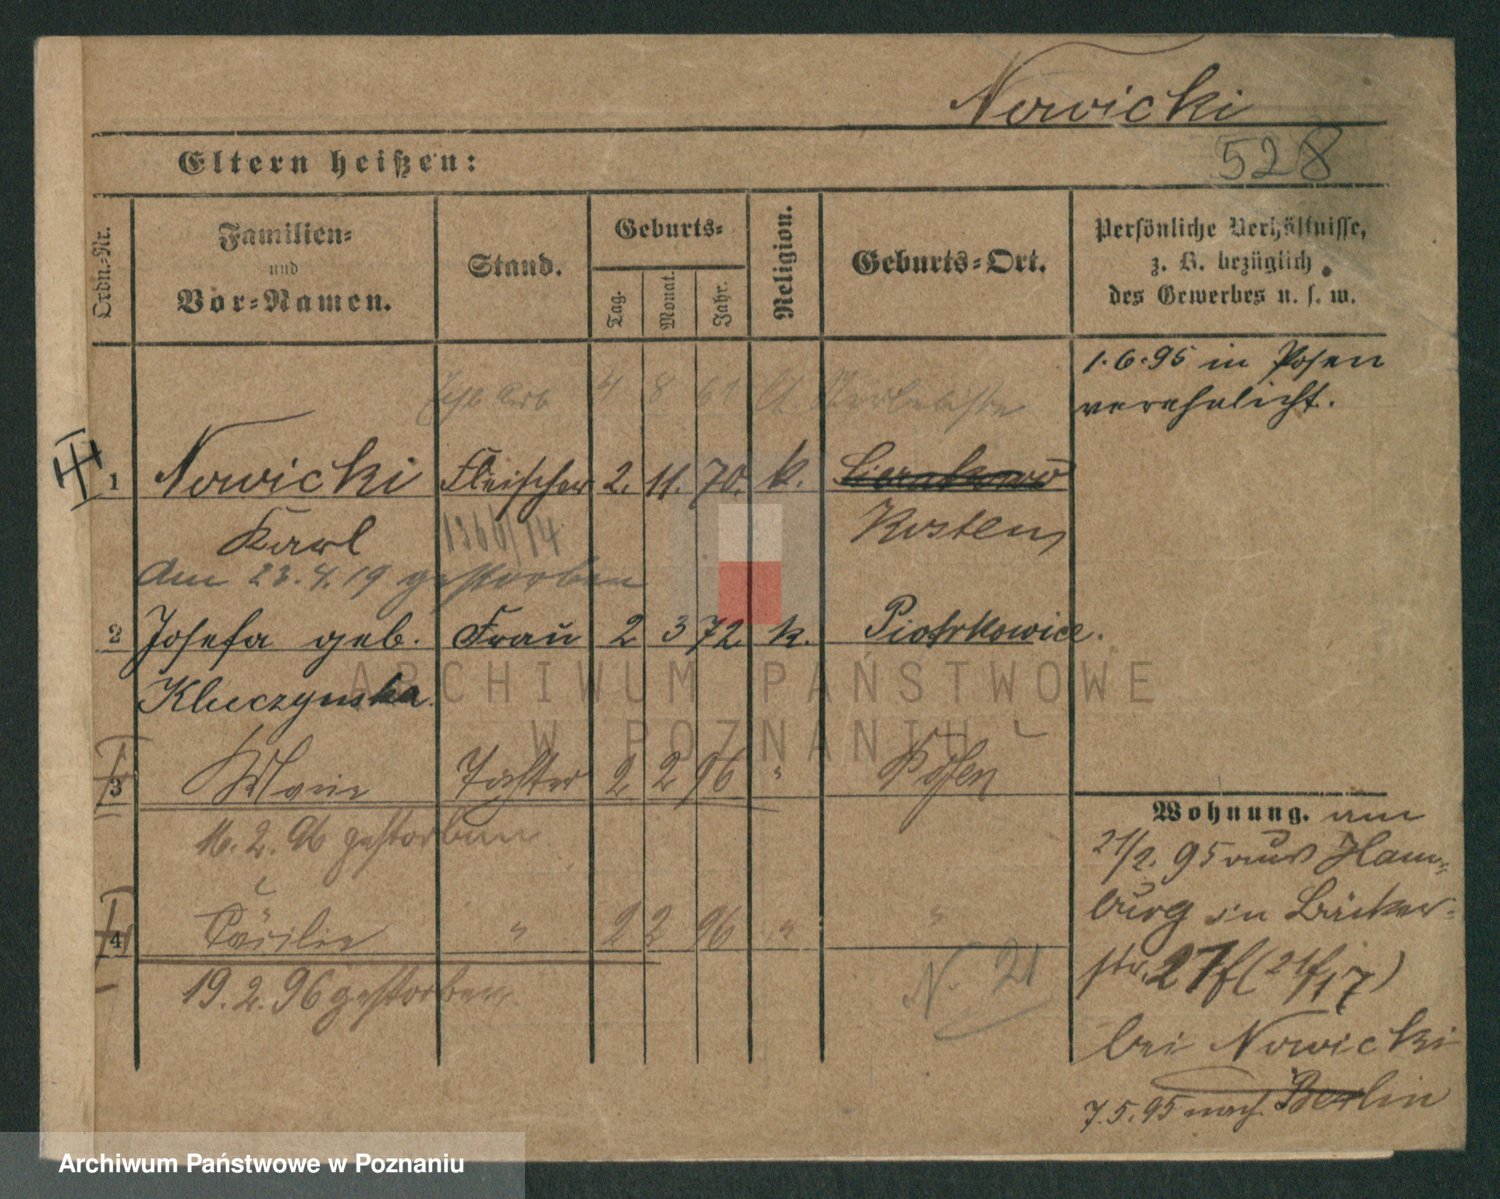 Nowicki
528
Eltern heißen:
Ordn.-Nr.
Familien-
und
Vor-Namen.
Stand.
Geburts-
Tag.
Monat.
Jahr.
Religion.
Geburts-Ort.
Persönliche Verhältnisse,
z. B. bezüglich
des Gewerbes u. s. w.
1.6.95 in Posen
verehelicht.
4 8 61
1 Nowicki Fleischer 2. 11. 70. k.
Karl Kosten
Am 23.4.19 gestorben
2 Josefa geb. Frau 2 3 72. k. Piotrkowice.
Kluczynska
3 Marie Tochter 2 2 96 " Posen
16.2.96 gestorben
4 Cäcilie " 2 2 96 " "
19.2.96 gestorben
N. 21
Wohnung. am
21/2. 95 aus Ham-
burg in Bäcker-
str. 27 f (21/17)
bei Nowicki
7.5.95 nach Berlin
ARCHIWUM PAŃSTWOWE
W POZNANIU
Archiwum Państwowe w Poznaniu